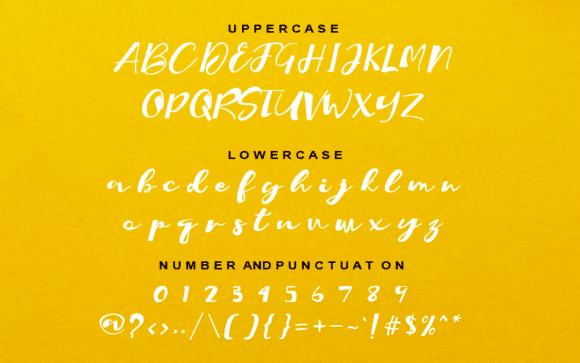 UPPERCASE
ABCDEFGHIJKLMN
OPQRSTUVWXYZ
LOWERCASE
a b c d e f g h i j k l m n
o p q r s t u v w x y z
NUMBER AND PUNCTUAT ON
0 1 2 3 4 5 6 7 8 9
@?<>../\(){}=+-~`!#$%^*